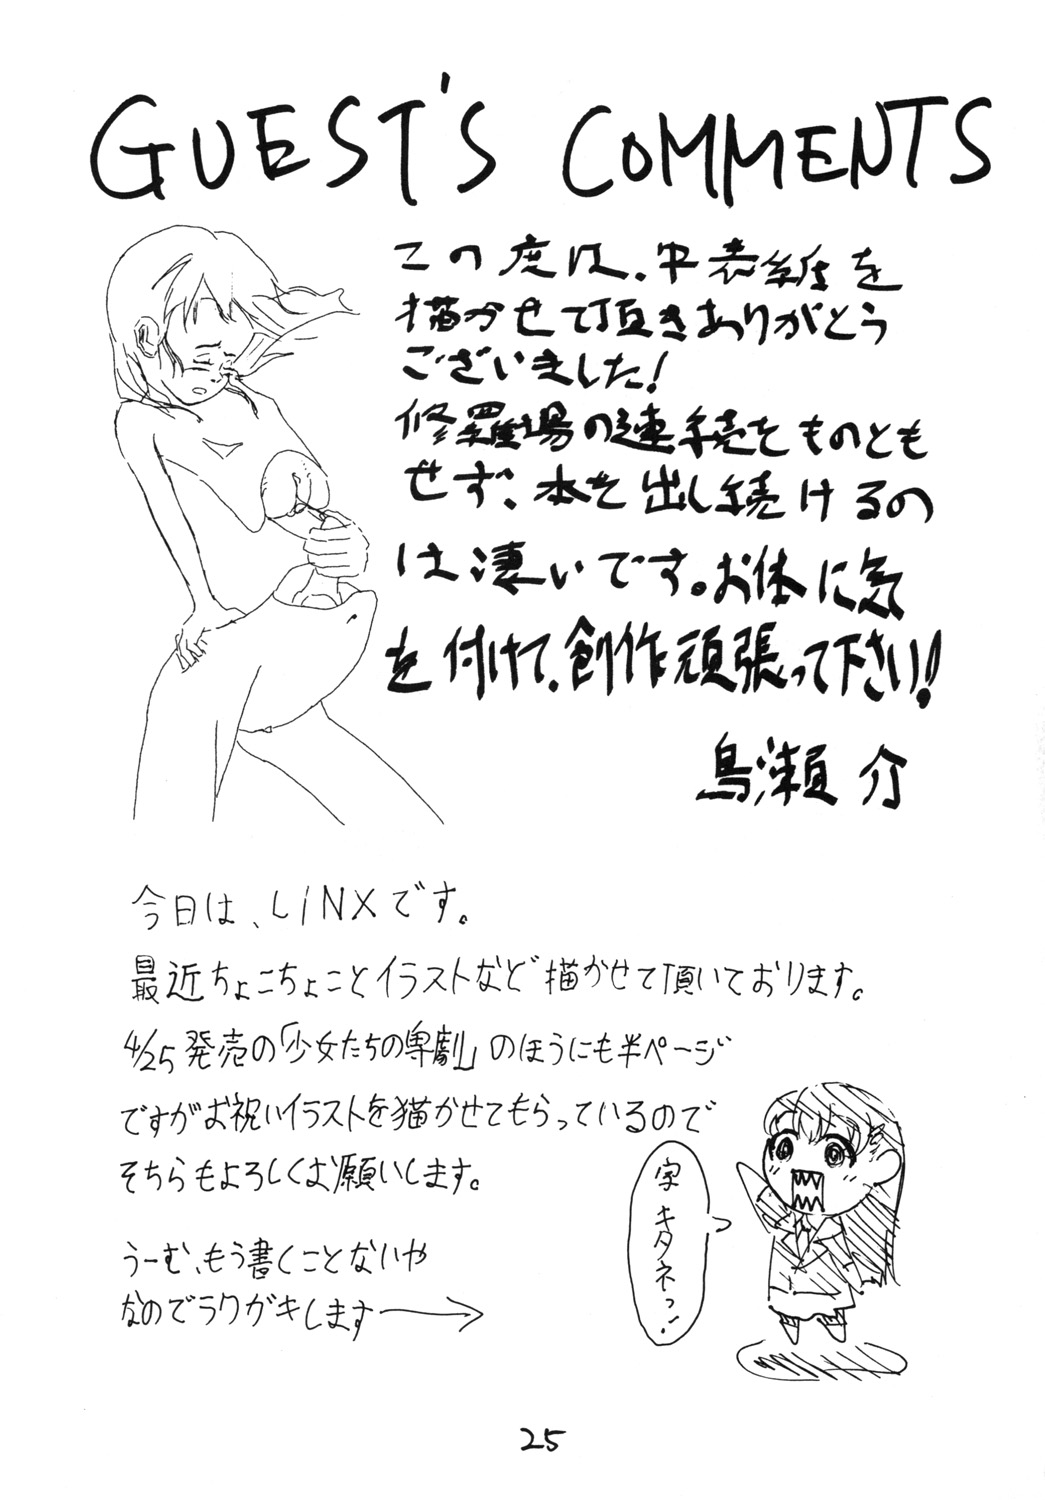 GUEST'S COMMENTS
この度は、中表紙を
描かせて頂きありがとう
ございました!
修羅場の連続をものとも
せず、本を出し続けるの
は凄いです。お体に気
を付けて、創作頑張って下さい!!
鳥瀬 介
今日は、LINXです。
最近ちょこちょことイラストなど描かせて頂いております。
4/25発売の「少女たちの専劇」のほうにも半ページ
ですがお祝いイラストを描かせてもらっているので
そちらもよろしくお願いします。
うーむ、もう書くことないや
なのでラクガキします
字キタネっ!
25